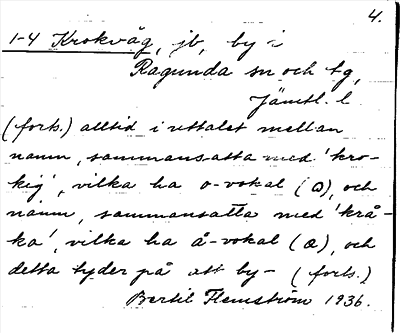 4.
1-4 Krokväg, jb, by i
Ragunda sn och tg,
Jämtl. l.
(forts.) alltid i uttalet mellan
namn, sammansatta med 'kro-
kig', vilka ha o-vokal (ɷ), och
namn, sammansatta med 'krå-
ka', vilka ha å-vokal (æ), och
detta tyder på att by- (forts.)
Bertil Flemström 1936.